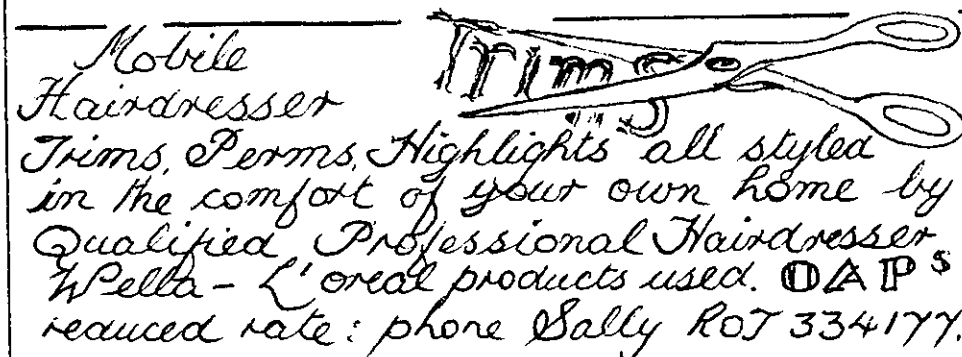 Trims
Mobile
Hairdresser
Trims, Perms, Highlights all styled
in the comfort of your own home by
Qualified Professional Hairdresser
Wella - L'oreal products used. OAPs
reduced rate: phone Sally ROT 334177.